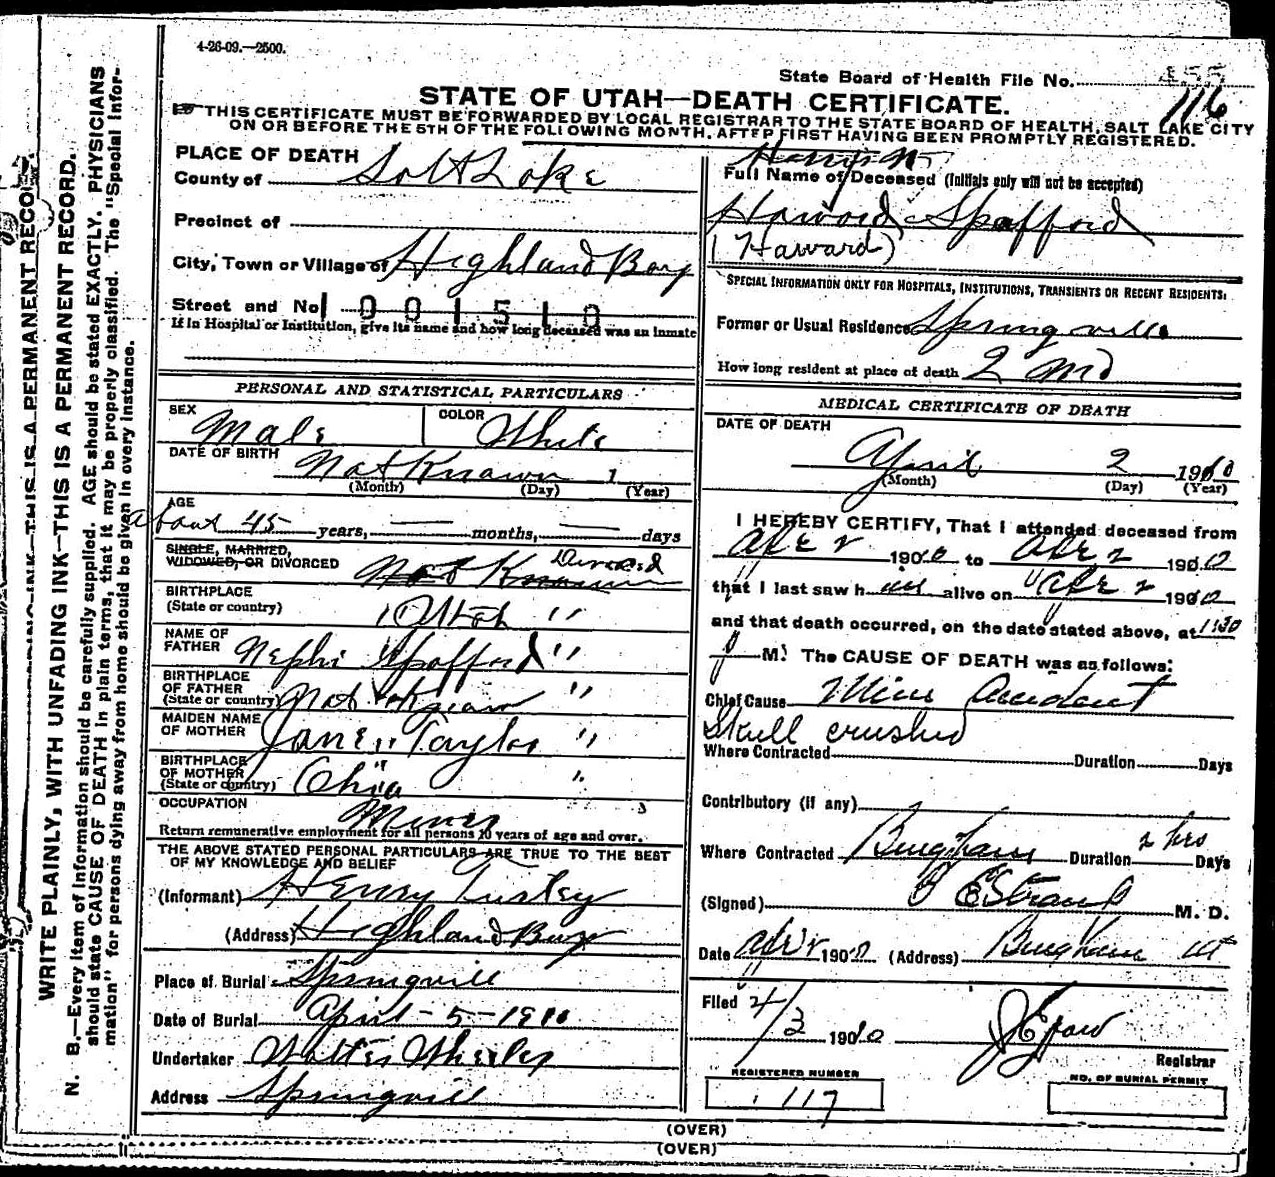 4-26-09.—2500.
State Board of Health File No. 455
116
STATE OF UTAH—DEATH CERTIFICATE.
THIS CERTIFICATE MUST BE FORWARDED BY LOCAL REGISTRAR TO THE STATE BOARD OF HEALTH, SALT LAKE CITY
ON OR BEFORE THE 5TH OF THE FOLLOWING MONTH, AFTER FIRST HAVING BEEN PROMPTLY REGISTERED.
WRITE PLAINLY, WITH UNFADING INK—THIS IS A PERMANENT RECORD.
N. B.—Every item of information should be carefully supplied. AGE should be stated EXACTLY. PHYSICIANS
should state CAUSE OF DEATH in plain terms, that it may be properly classified. The "Special Infor-
mation" for persons dying away from home should be given in every instance.
PLACE OF DEATH
County of Salt Lake
Precinct of
City, Town or Village of Highland Boy
Street and No. 1001510
If in Hospital or Institution, give its name and how long deceased was an inmate
PERSONAL AND STATISTICAL PARTICULARS
SEX Male COLOR White
DATE OF BIRTH Not Known 1
(Month) (Day) (Year)
AGE
about 45 years, — months, — days
SINGLE, MARRIED,
WIDOWED, OR DIVORCED Not Known Divorced
BIRTHPLACE
(State or country) Utah "
NAME OF
FATHER Nephi Spafford "
BIRTHPLACE
OF FATHER
(State or country) Not Known "
MAIDEN NAME
OF MOTHER Jane Taylor "
BIRTHPLACE
OF MOTHER
(State or country) Ohio "
OCCUPATION Miner
Return remunerative employment for all persons 10 years of age and over.
THE ABOVE STATED PERSONAL PARTICULARS ARE TRUE TO THE BEST
OF MY KNOWLEDGE AND BELIEF
(Informant) Henry Turley
(Address) Highland Boy
Place of Burial Springvill
Date of Burial April - 5 - 1910
Undertaker Walter Wheeler
Address Springvill
Harry
Full Name of Deceased (Initials only will not be accepted)
Haword Spafford
(Haward)
SPECIAL INFORMATION ONLY FOR HOSPITALS, INSTITUTIONS, TRANSIENTS OR RECENT RESIDENTS:
Former or Usual Residence Springville
How long resident at place of death 2 mo
MEDICAL CERTIFICATE OF DEATH
DATE OF DEATH
April 2 1910
(Month) (Day) (Year)
I HEREBY CERTIFY, That I attended deceased from
Apr 2 1910 to Apr 2 1910
that I last saw h im alive on Apr 2 1910
and that death occurred, on the date stated above, at 1:30
p M. The CAUSE OF DEATH was as follows:
Chief Cause Mine Accident
Skull crushed
Where Contracted Duration Days
Contributory (if any)
Where Contracted Bingham Duration 2 hrs Days
(Signed) M. D.
Date Apr 2 1910 (Address) Bingham Ut
Filed 4/3 1910
Registrar
REGISTERED NUMBER
117
NO. OF BURIAL PERMIT
(OVER)
(OVER)